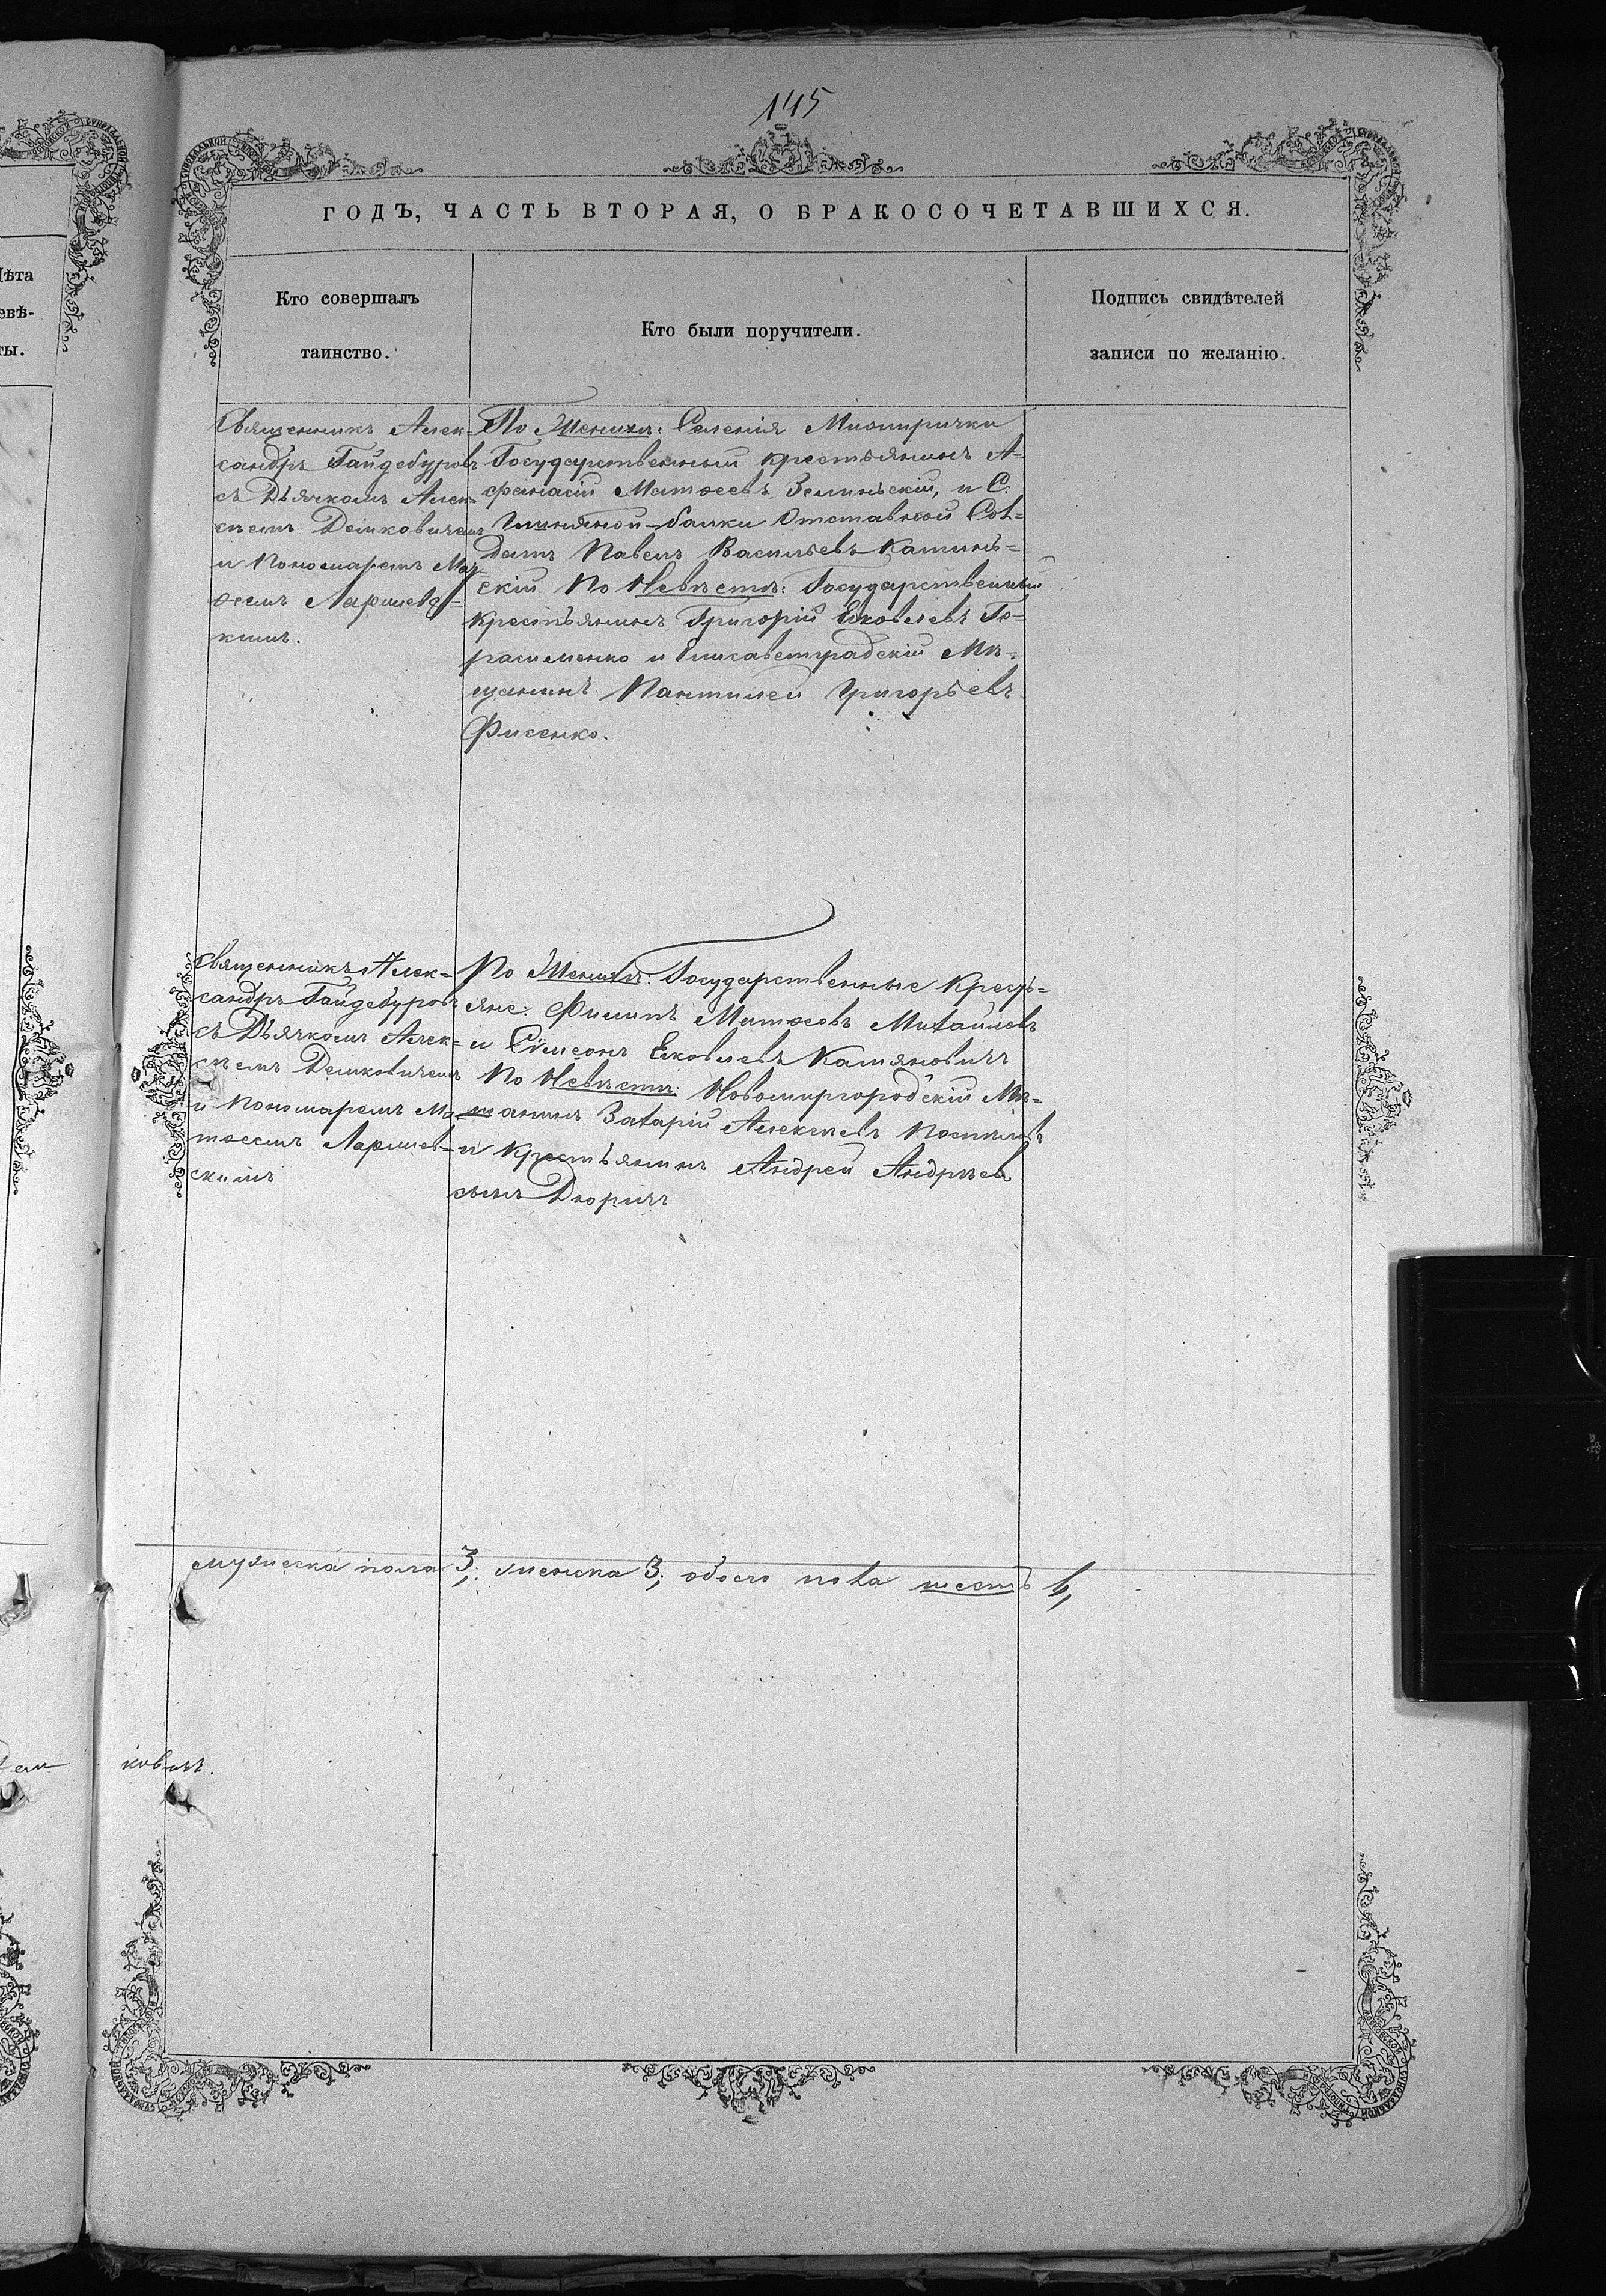 145
ГОДЪ, ЧАСТЬ ВТОРАЯ, О БРАКОСОЧЕТАВШИХСЯ.
Кто совершалъ
таинство.
Кто были поручители.
Подпись свидѣтелей
записи по желанію.
Лѣта
евѣ-
ты.
Священникъ Алек-
сандръ Гайдебуровъ
съ Дьячкомъ Алек-
сѣемъ Демковичемъ
и Пономаремъ Мат-
ѳеемъ Ларшевс-
кимъ.
По Женихѣ: Селенія
Государственный крестьянинъ А-
ѳанасій Матѳеевъ Зелинскій, и С.
Глиняной-балки Отставной Сол-
датъ Павелъ Васильевъ Калинь-
скій. По Невѣстѣ: Государственный
Крестьянинъ Григорій Яковлевъ Ге-
расименко и Елисаветградскій Мѣ-
щанинъ Пантилей Григорьевъ
Фисенко.
Священникъ Алек-
сандръ Гайдебуровъ
съ Дьячкомъ Алек-
сѣемъ Демковичемъ
и Пономаремъ Ма-
тѳеемъ Ларшев-
скимъ
По Женихѣ: Государственные Кресть-
яне: Филипъ Матѳеевъ Михайловъ
и Сѵмеонъ Яковлевъ
По Невѣстѣ: Новомиргородскій Мѣ-
щанинъ Захарій Алексѣевъ
и Крестьянинъ Андрей Андрѣевъ
сынъ Дюричъ
мужеска пола 3; женска 3; обоего пола шесть 6,